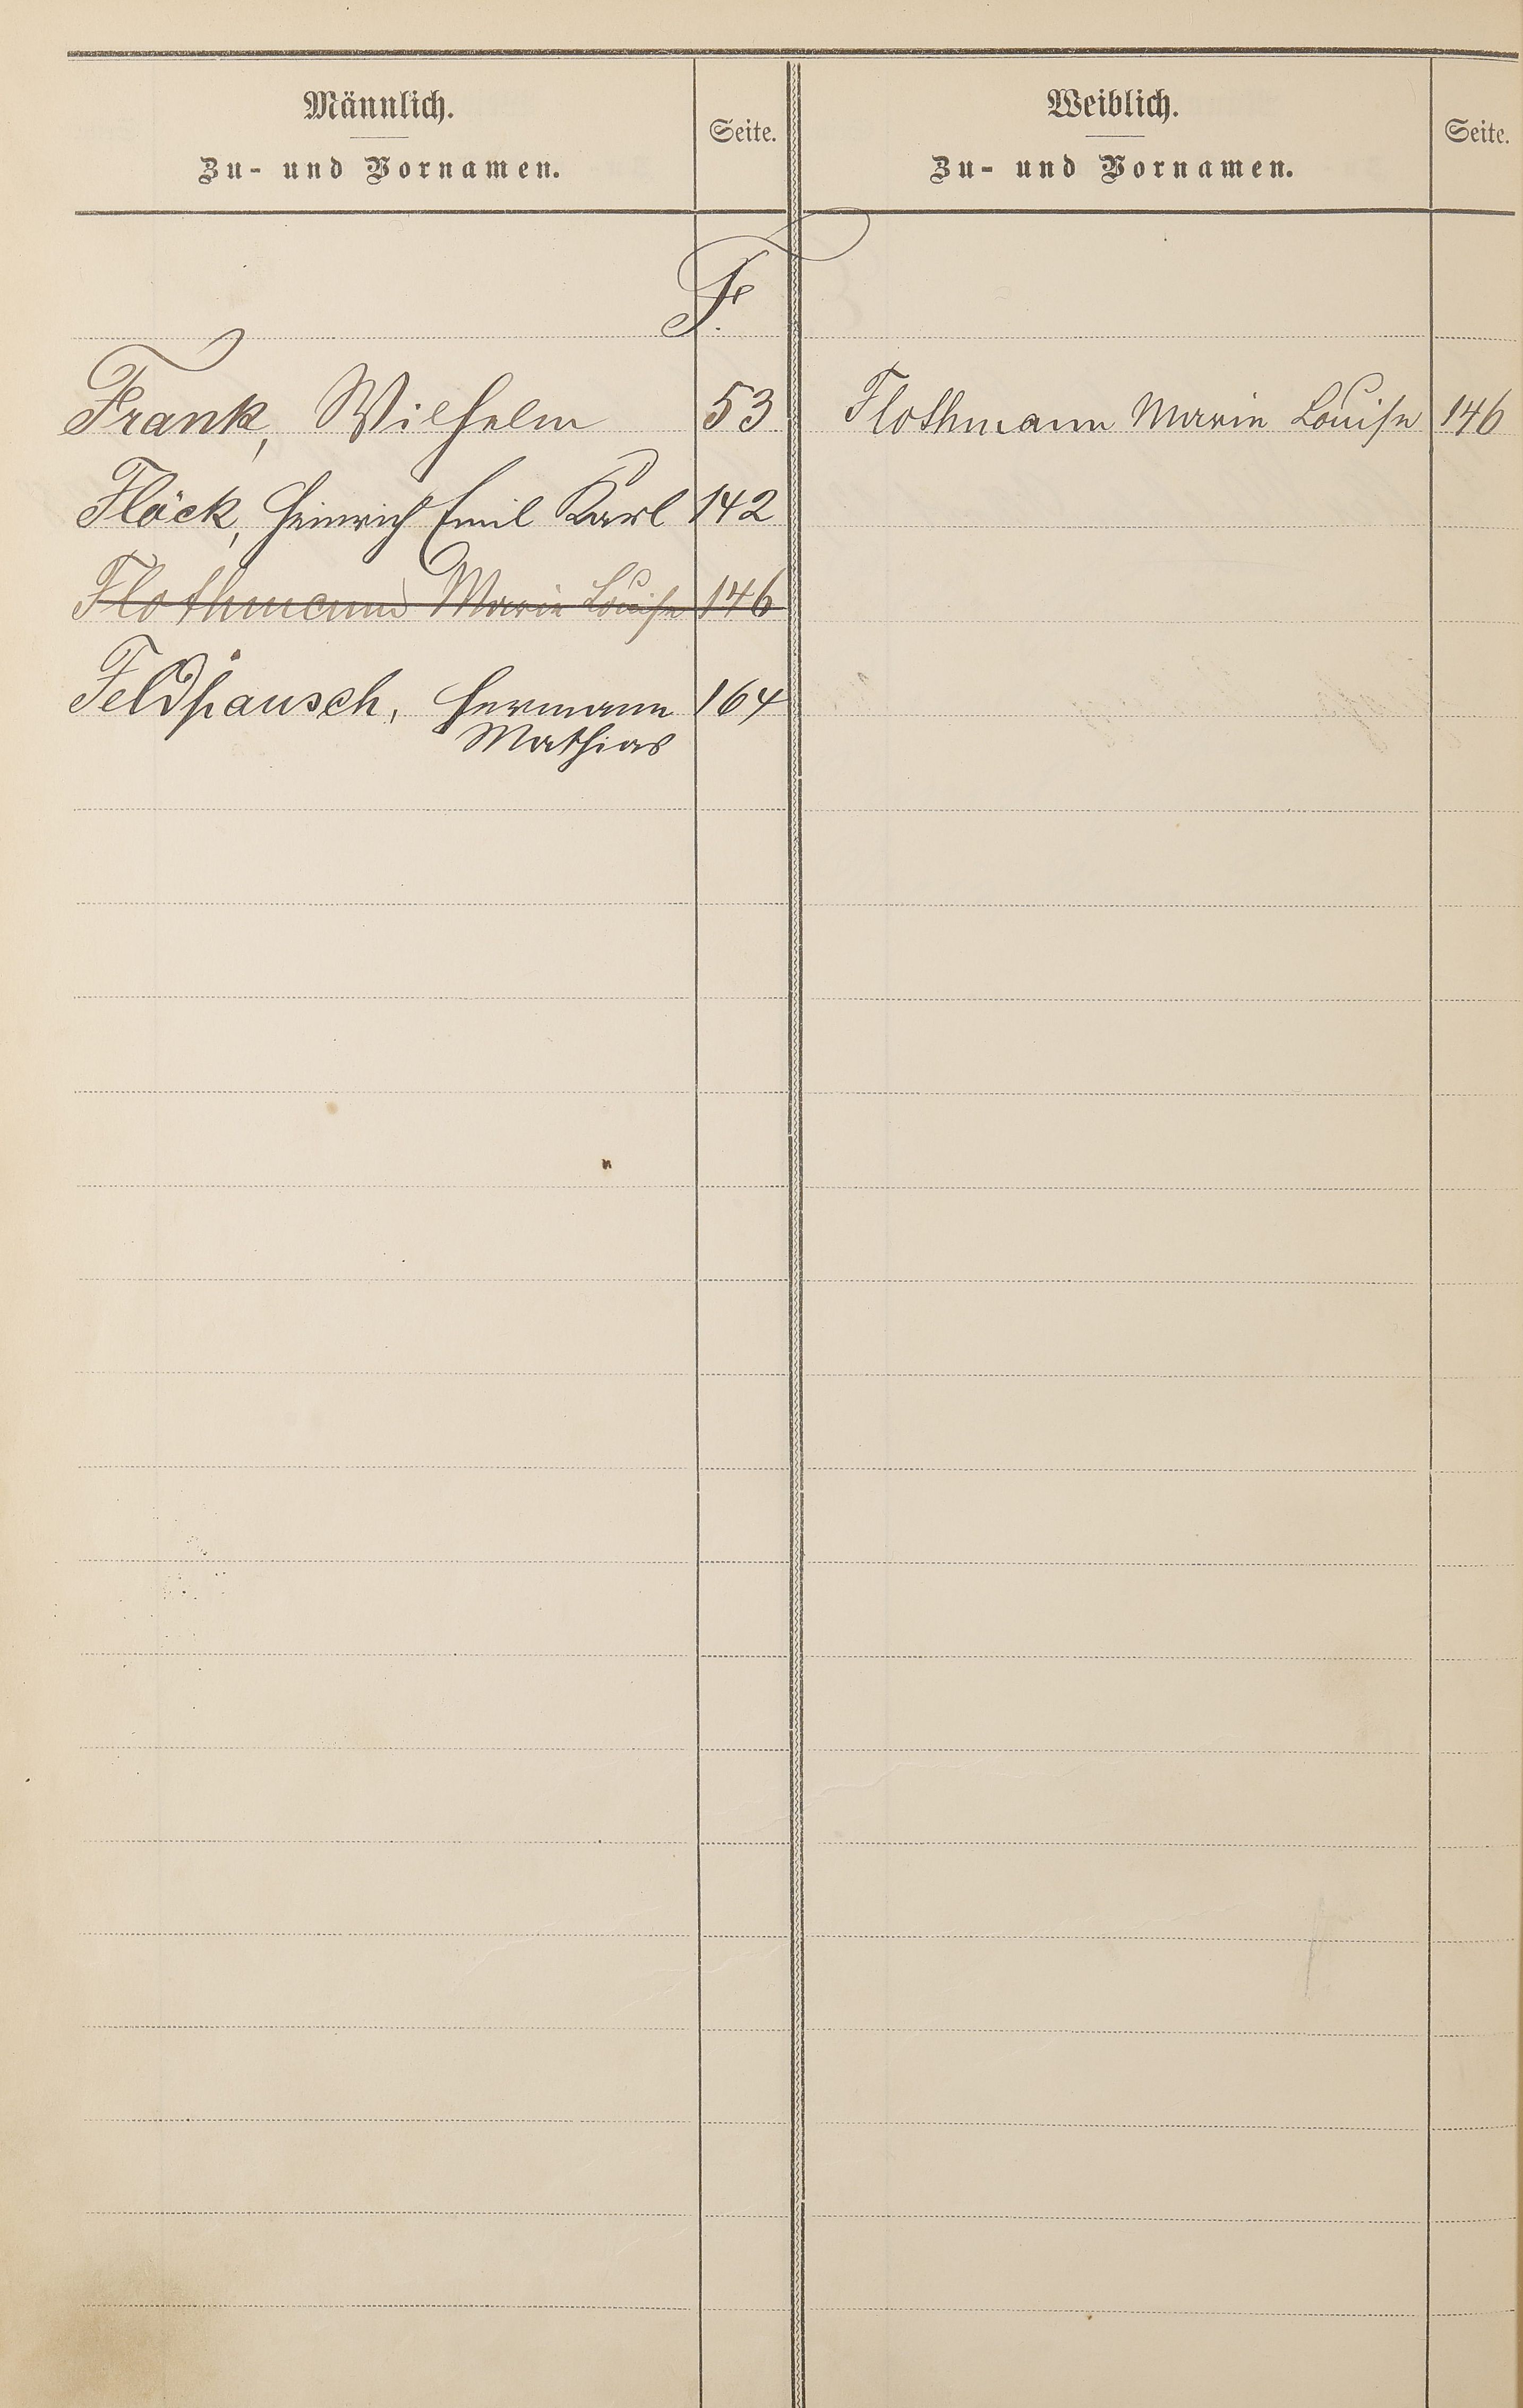 Männlich.
Zu- und Vornamen.
Seite.
Weiblich.
Zu- und Vornamen.
Seite.
F.
Frank, Wilhelm 53
Flothmann Marie Louise 146
Flöck, Heinrich Emil Karl 142
Flothmann Marie Louise 146
Feldhausch, Hermann 164
Mathias